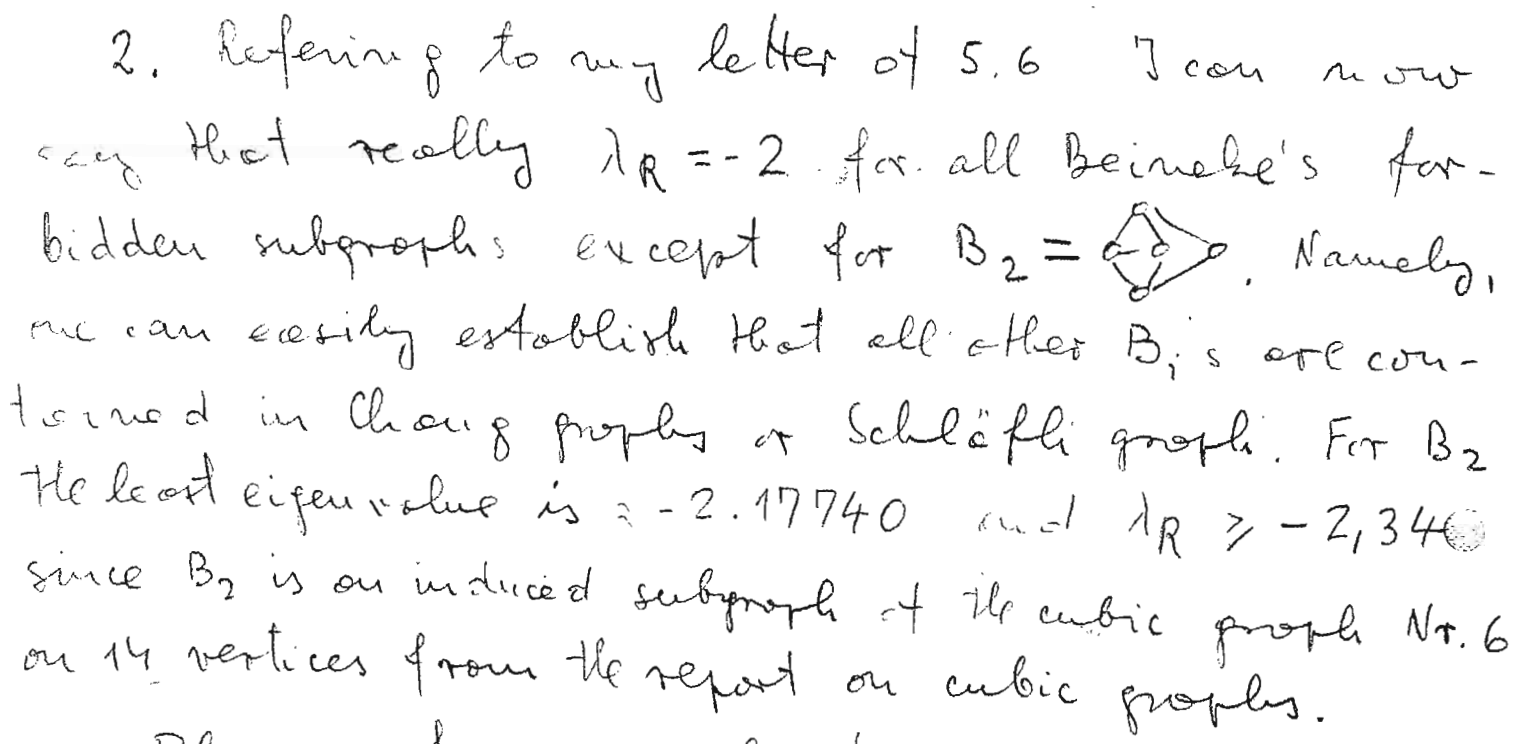 2. Refering to my letter of 5.6 I can now
say that really λR = -2 for all Beineke's for-
bidden subgraphs except for B2 = . Namely,
one can easily establish that all other Bi's are con-
tained in Chang graphs or Schläfli graph. For B2
the least eigenvalue is = -2.17740 and λR ≥ -2,34
since B2 is an induced subgraph of the cubic graph Nr. 6
on 14 vertices from the report on cubic graphs.